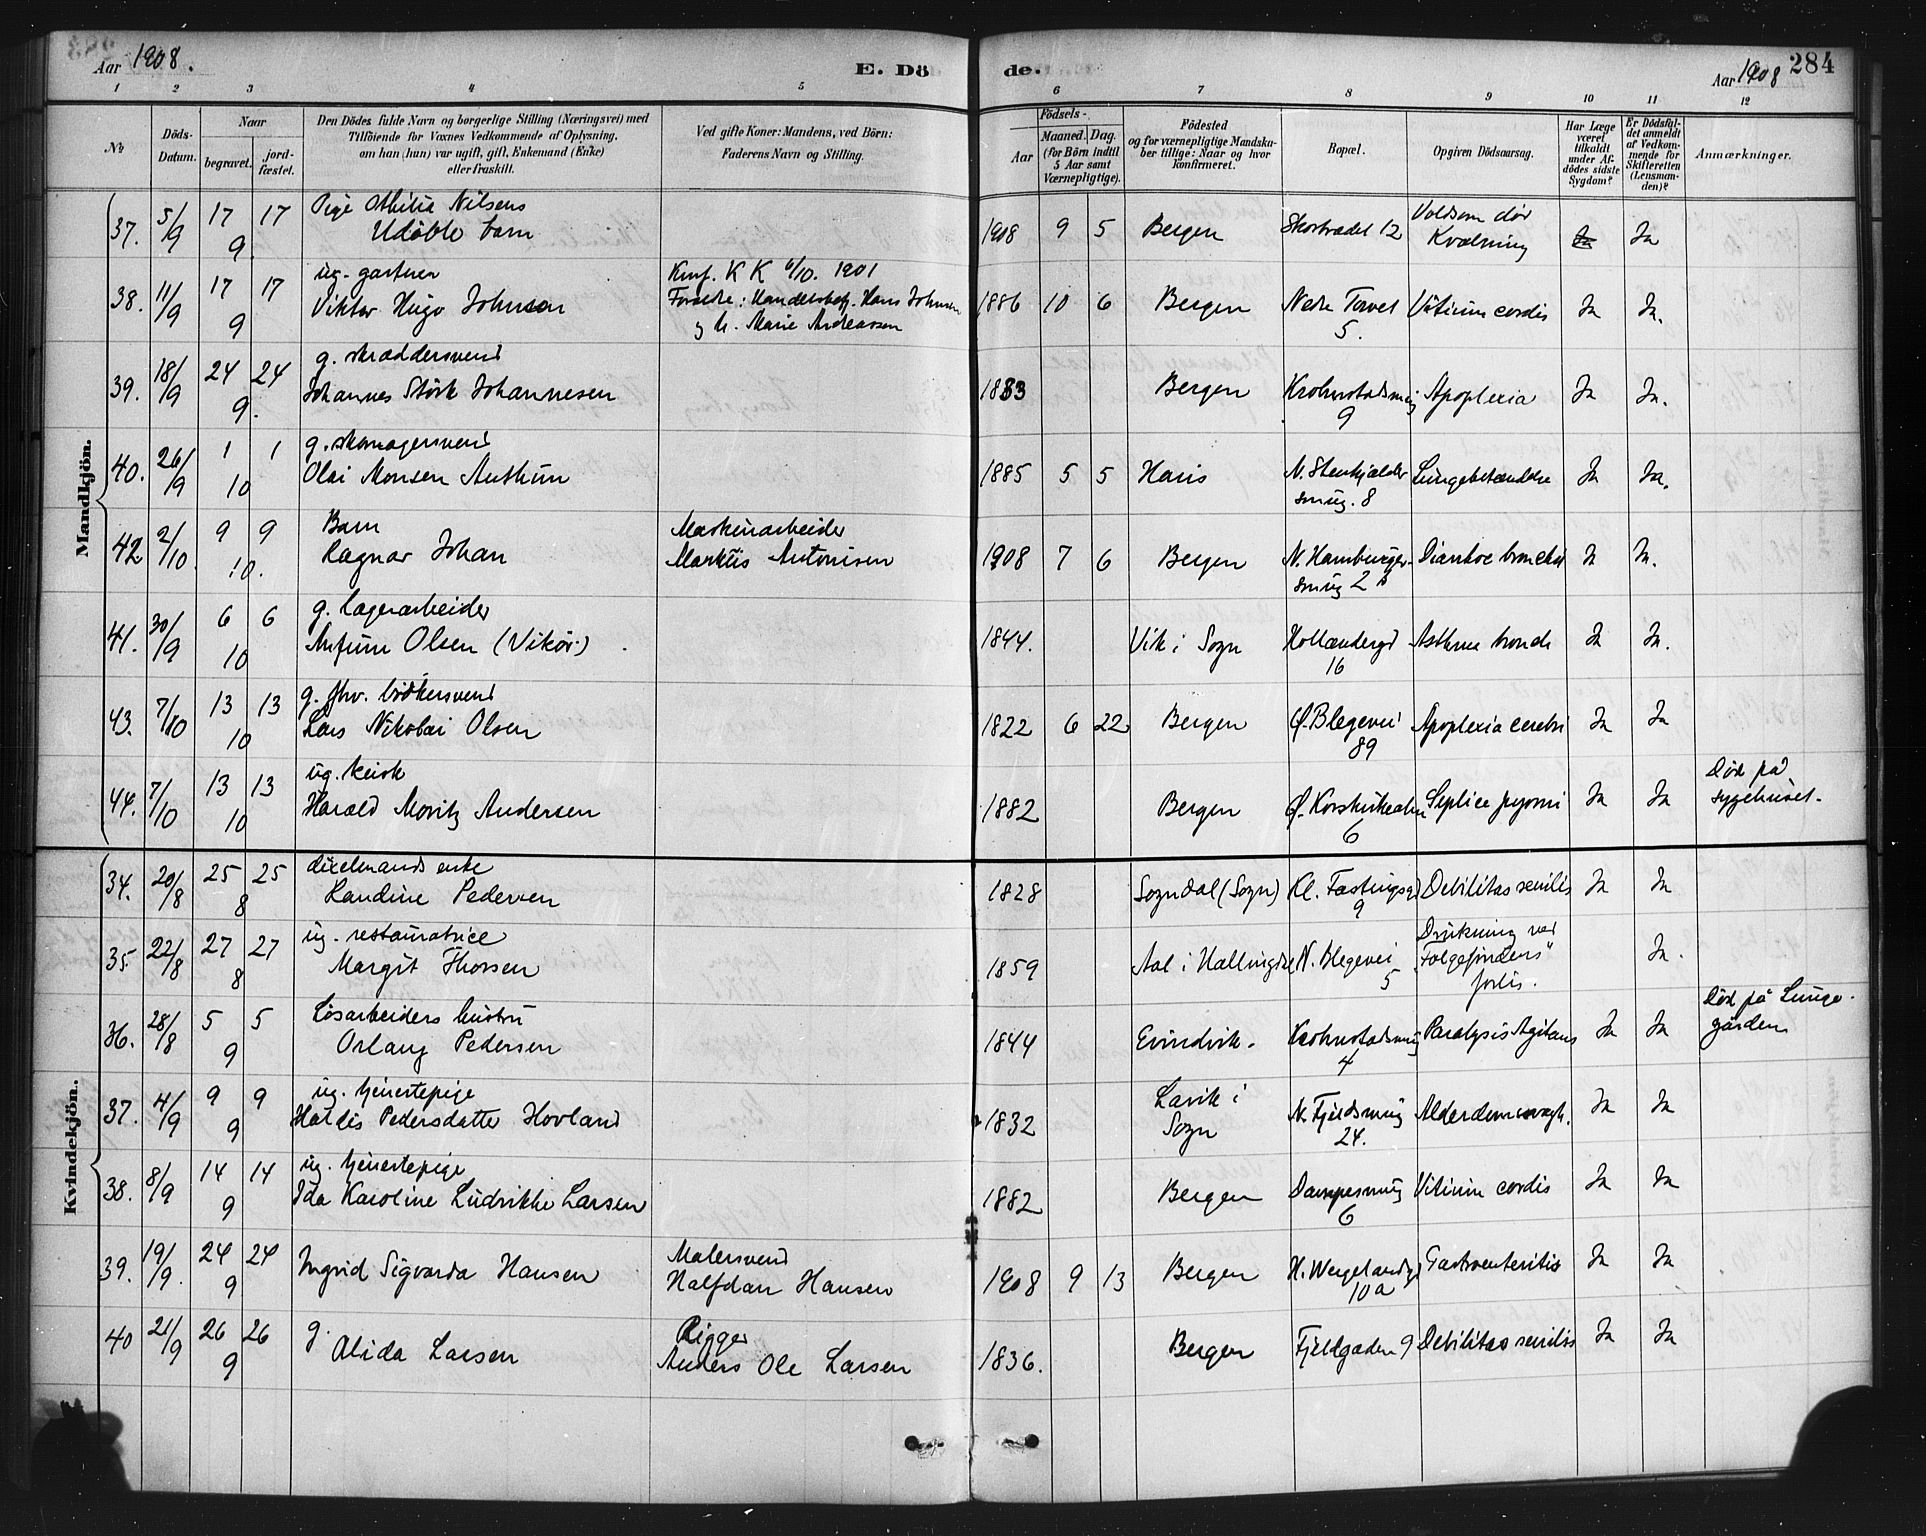 Aar 1908.
E. Döde.
Aar 1908
284
1 2 3 4 5 6 7 8 9 10 11 12
No
Döds-Datum.
Naar
begravet.
jord-fæstet.
Den Dödes fulde Navn og borgerlige Stilling (Næringsvei) med
Tilföiende for Voxnes Vedkommende af Oplysning,
om han (hun) var ugift, gift, Enkemand (Enke)
eller fraskilt.
Ved gifte Koner: Mandens, ved Börn:
Faderens Navn og Stilling.
Födsels-
Aar
Maaned. Dag.
(for Börn indtil
5 Aar samt
Værnepligtige).
Födested
og for værnepligtige Mandska-
ber tillige: Naar og hvor
konfirmeret.
Bopæl.
Opgiven Dödsaarsag.
Har Læge
været
tilkaldt
under Af-
dödes sidste
Sygdom?
Er Dödsfal-
det anmeldt
af Vedkom-
mende for
Skifteretten
(Lensman-
den)?
Anmærkninger.
Mandkjön.
37. 5/9 17/9 17 Pige Othilia Nilsens
Udöbte barn 1908 9 5 Bergen 12 Voldsom död
Kvælning Ja Ja
38. 11/9 17/9 17 ug. gartner
Viktor Hugo Johnson Konf. K K 6/10. 1901
Forældre: Handelsbetj. Hans Johnsen
og h. Marie Andreassen 1886 10 6 Bergen Nedre Torvet
5. Vitium cordis Ja Ja.
39. 18/9 24/9. 24 g. skræddersvend
Johannes Störk Johannesen 1833 Bergen Krohnstadsmug
9 Apoplexia Ja Ja.
40. 26/9 1/10 1 g. skomagersvend
Olai Monsen Anthun 1885 5 5 N. Stenkjælder
smug. 8 Lungebetændelse Ja Ja.
42 2/10 9/10. 9 Barn
Ragnar Johan Maskinarbeider
Markus Antonisen 1908 7 6 Bergen N. Hamburger-
smug 2 Ja Ja.
41. 30/9 6/10 6 g. lagerarbeider
Olsen (Vikör) 1844. Vik i Sogn Hollændergd
16 Asthma bronch Ja Ja.
43. 7/10 13/10 13 g. fhv. bödkersvend
Lars Nikolai Olsen 1822 6 22 Bergen Ø. Blegevei
89 Apoplexia cerebri Ja Ja
44. 7/10 13/10 13 ug. keisk
Harald Moritz Andersen 1882 Bergen
6 Ja Ja Död på
sygehuset.
Kvindekjön.
34. 20/8 25/8 25 enke
Landine Pedersen 1828 Sogndal (Sogn) Kl. Fastingsgd
9 Debilitas senilis Ja Ja
35. 22/8 27/8 27 ug. restauratrice
Margit Thorsen 1859 Aal i Hallingdal N. Blegevei
5 Drukning ved
"Folgefondens"
forlis. Ja.
36. 28/8 5/9 5 Lösarbeiders hustru
Orlaug Pedersen 1844 Evindvik. Krohnstadsmug
4 Paralysis Agitans Ja Ja Död på Lunge-
gården
37. 4/9 9/9 9 ug. tjenestepige
Haldis Pedersdatter Hovland 1832 Lavik i
Sogn N. Fjeldsmug
24. Ja Ja
38. 8/9 14/9 14 ug. tjenestepige
Ida Karoline Ludvikke Larsen 1882 Bergen Dampesmug
6 Vitium cordis Ja Ja
39. 19/9. 24/9 24 Ingrid Sigvarda Hansen Malersvend
Halfdan Hansen 1908 9 13 Bergen H. Wergelandgd
10a Gastroenteritis Ja Ja
40 21/9 26/9 26 g.
Alida Larsen Rigger
Anders Ole Larsen 1836. Bergen Fjeldgaden 9 Debilitas senilis Ja Ja